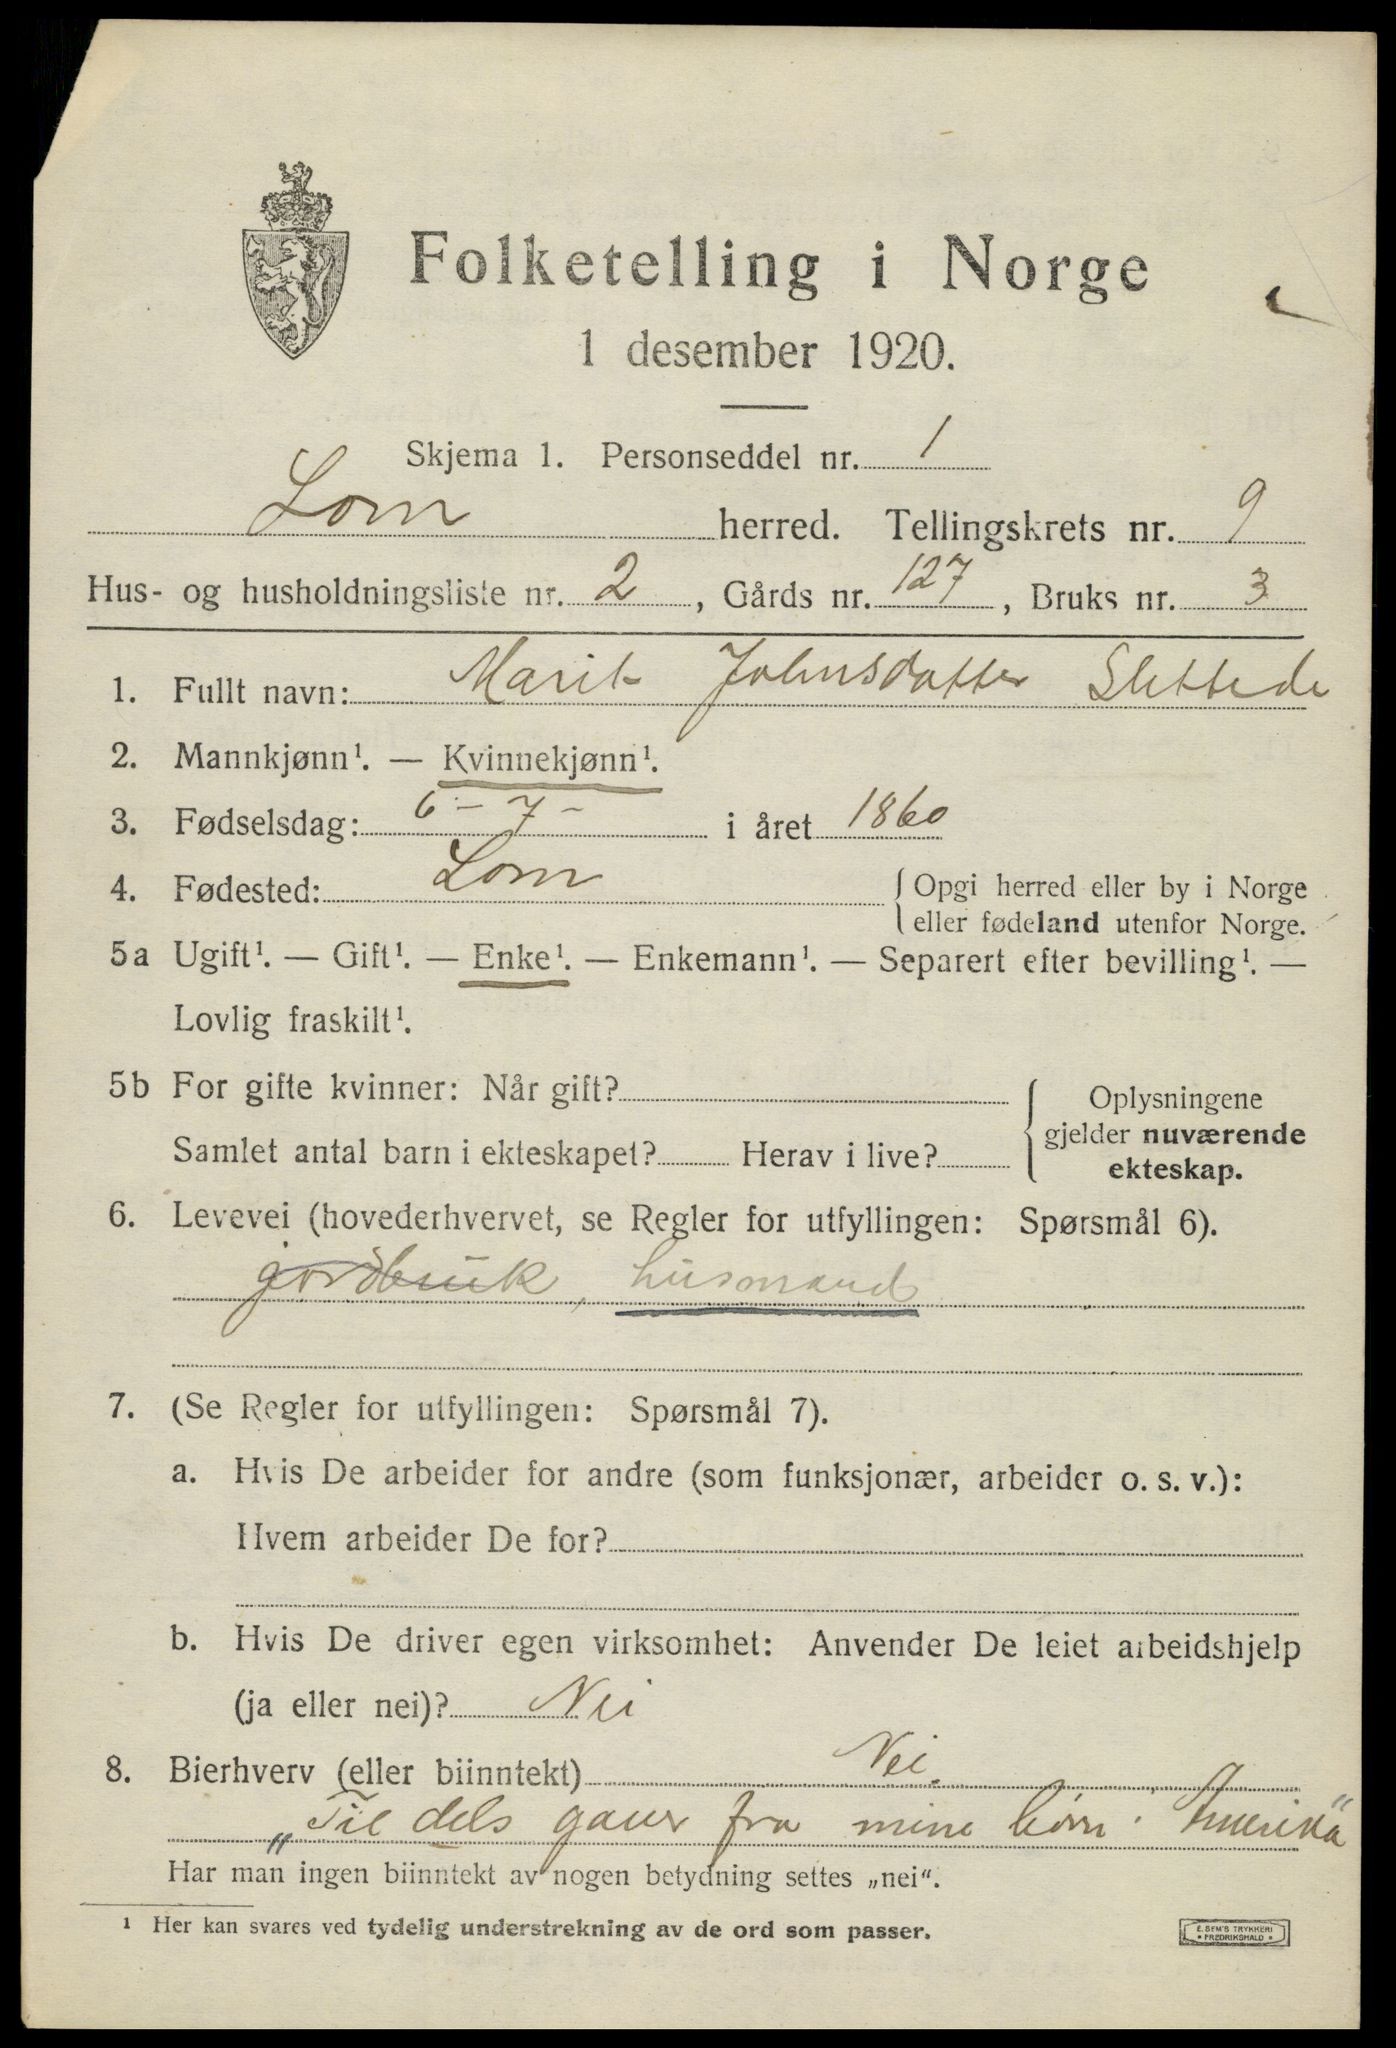 Folketelling i Norge
1 desember 1920.
Skjema 1. Personseddel nr. 1
Lom herred. Tellingskrets nr. 9
Hus- og husholdningsliste nr. 2, Gårds nr. 127, Bruks nr. 3
1. Fullt navn: Marit Johnsdatter Slettede
2. Mannkjønn¹. — Kvinnekjønn¹.
3. Fødselsdag: 6 - 7 - i året 1860
4. Fødested: Lom { Opgi herred eller by i Norge
eller fødeland utenfor Norge.
5a Ugift¹. — Gift¹. — Enke¹. — Enkemann¹. — Separert efter bevilling¹. —
Lovlig fraskilt¹.
5b For gifte kvinner: Når gift? { Oplysningene
gjelder nuværende
Samlet antal barn i ekteskapet? Herav i live?
ekteskap.
6. Levevei (hovederhvervet, se Regler for utfyllingen: Spørsmål 6).
jordbruk, husmand
7. (Se Regler for utfyllingen: Spørsmål 7).
a. Hvis De arbeider for andre (som funksjonær, arbeider o. s. v.):
Hvem arbeider De for?
b. Hvis De driver egen virksomhet: Anvender De leiet arbeidshjelp
(ja eller nei)? Nei
8. Bierhverv (eller biinntekt) Nei.
„Til dels gaver fra mine børn i Amerika“
Har man ingen biinntekt av nogen betydning settes „nei“.
¹ Her kan svares ved tydelig understrekning av de ord som passer.
E. SEM'S TRYKKERI
• FREDRIKSHALD •